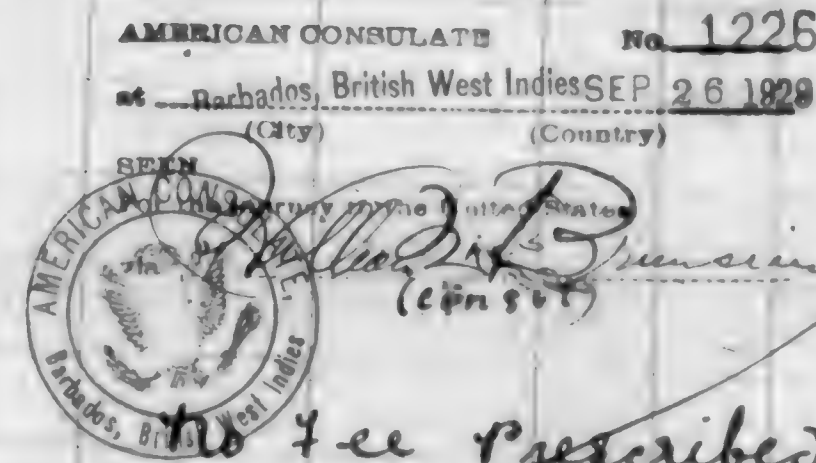 AMERICAN CONSULATE No. 1226
at Barbados, British West Indies SEP 26 1929
(City) (Country)
SEEN
For the journey to the United States
(consul)
AMERICAN CONSULATE,
Barbados, British West Indies
No Fee Prescribed